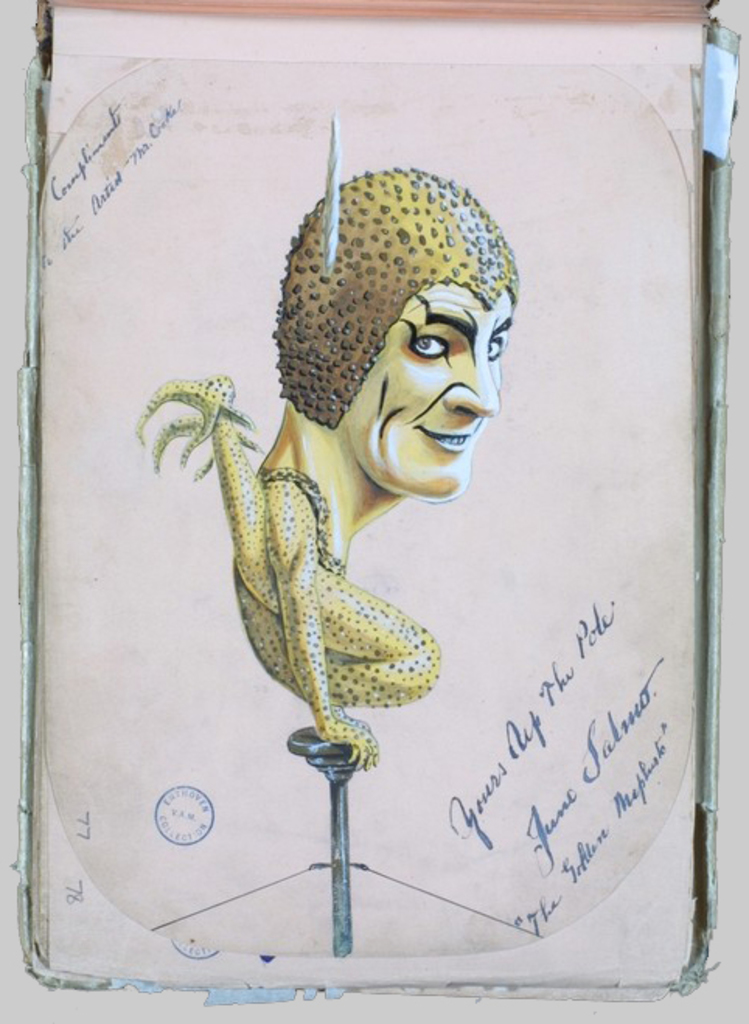 Compliments
to the Artist Mr. Cooke
Yours Up The Pole
Juno Salmo.
"The Golden Mephisto"
ENTHOVEN
V.A.M.
COLLECTION
77
78